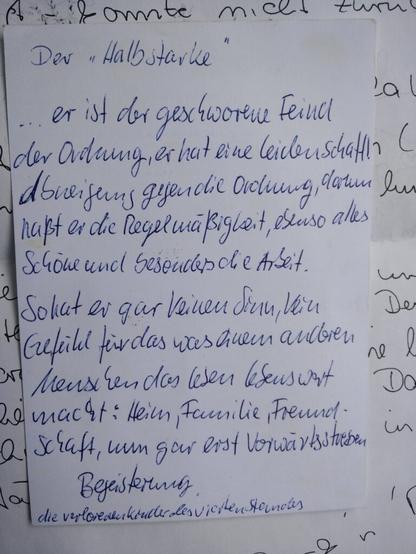 konnte nicht zurü
Der „Halbstarke"
... er ist der geschworene Feind
der Ordnung, er hat eine leidenschaftl
Abneigung gegen die Ordnung, darum
haßt er die Regelmäßigkeit, ebenso alles
Schöne und besonders die Arbeit.
So hat er gar keinen Sinn, kein
Gefühl für das was einem anderen
Menschen das Leben lebenswert
macht: Heim, Familie, Freund-
schaft, nun gar erst Vorwärtsstreben
Begeisterung.
die verlorenen Kinder des vierten Standes